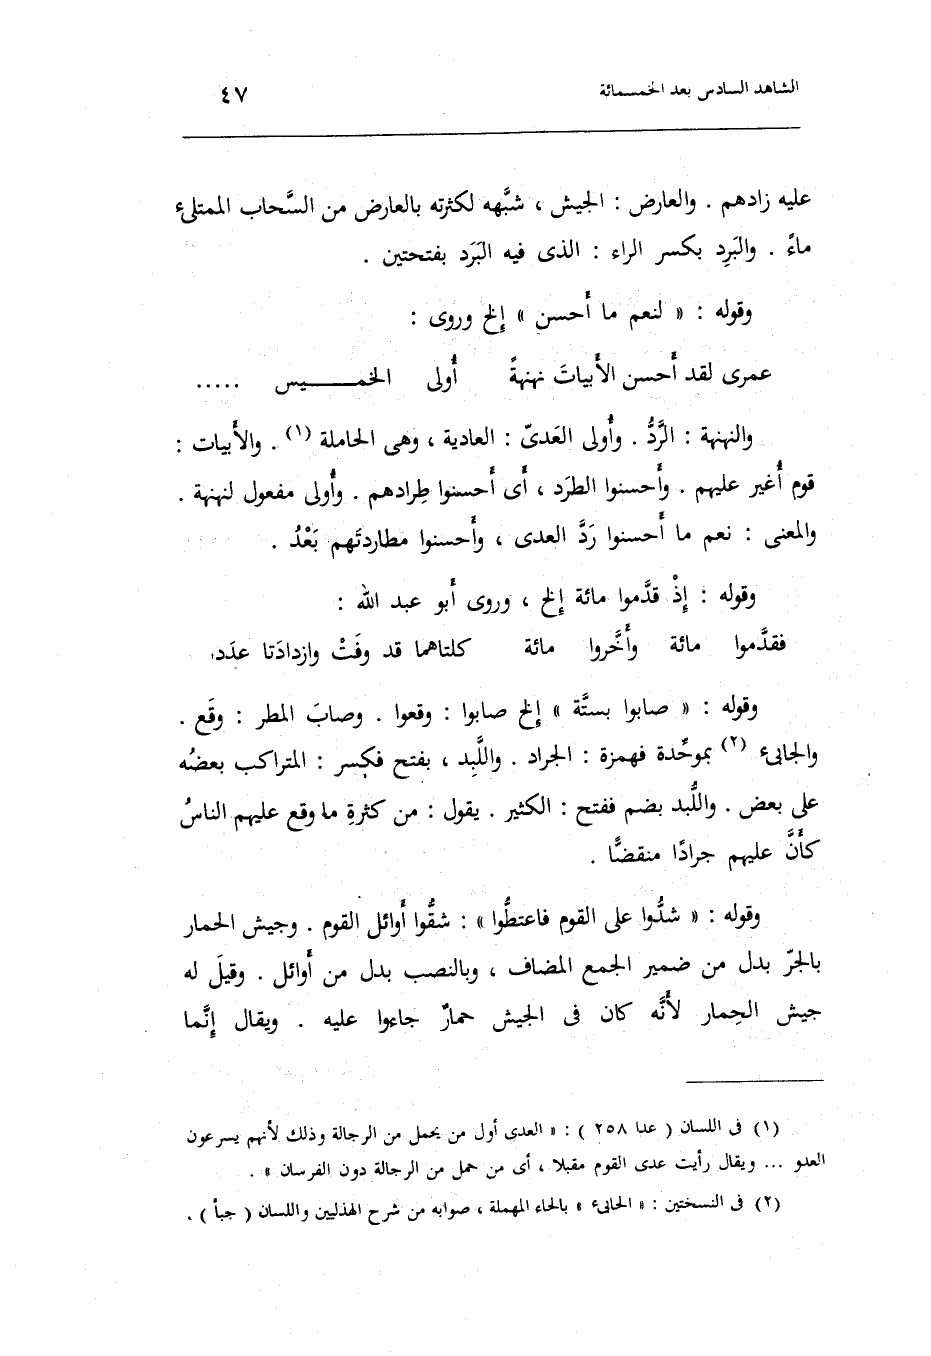 الشاهد السادس بعد الخمسمائة ٤٧
عليه زادهم . والعارض : الجيش ، شبَّهه لكثرته بالعارض من السَّحاب الممتلىء
ماءً . والبَرِد بكسر الراء : الذى فيه البَرَد بفتحتين .
وقوله : « لنعم ما أَحسن » إلخ وروى :
عمرى لقد أَحسن الأَبياتَ نهنهةً أُولى الخمـــــــيس .....
والنهنهة : الرَّدُّ . وأُولى العَدىّ : العادية ، وهى الحاملة (١) . والأَبيات :
قوم أُغير عليهم . وأَحسنوا الطرَد ، أَى أَحسنوا طِرادهم . وأُولى مفعول لنهنهة .
والمعنى : نعم ما أَحسنوا رَدَّ العدى ، وأَحسنوا مطاردتَهم بَعْدُ .
وقوله : إِذْ قدَّموا مائة إلخ ، وروى أَبو عبد الله :
فقدَّموا مائة وأَخَّروا مائة كلتاهما قد وفَتْ وازدادَتا عدَد
وقوله : « صابوا بستَّة » إلخ صابوا : وقعوا . وصابَ المطر : وقَع .
والجابىء (٢) بموحِّدة فهمزة : الجراد . واللَّبِد ، بفتح فكسر : المتراكب بعضُه
على بعض . واللُّبد بضم ففتح : الكثير . يقول : من كثرةِ ما وقع عليهم الناسُ
كأَنَّ عليهم جرادًا منقضًّا .
وقوله : « شدُّوا على القوم فاعتطُّوا » : شقُّوا أَوائل القوم . وجيش الحمار
بالجرّ بدل من ضمير الجمع المضاف ، وبالنصب بدل من أَوائل . وقيلَ له
جيش الحِمار لأَنَّه كان فى الجيش حمارٌ جاءوا عليه . ويقال إِنَّما
(١) فى اللسان ( عدا ٢٥٨ ) : « العدى أول من يحمل من الرجالة وذلك لأنهم يسرعون
العدو ... ويقال رأيت عدى القوم مقبلا ، أى من حمل من الرجالة دون الفرسان » .
(٢) فى النسختين : « الحابىء » بالحاء المهملة ، صوابه من شرح الهذليين واللسان ( جبأ ) .